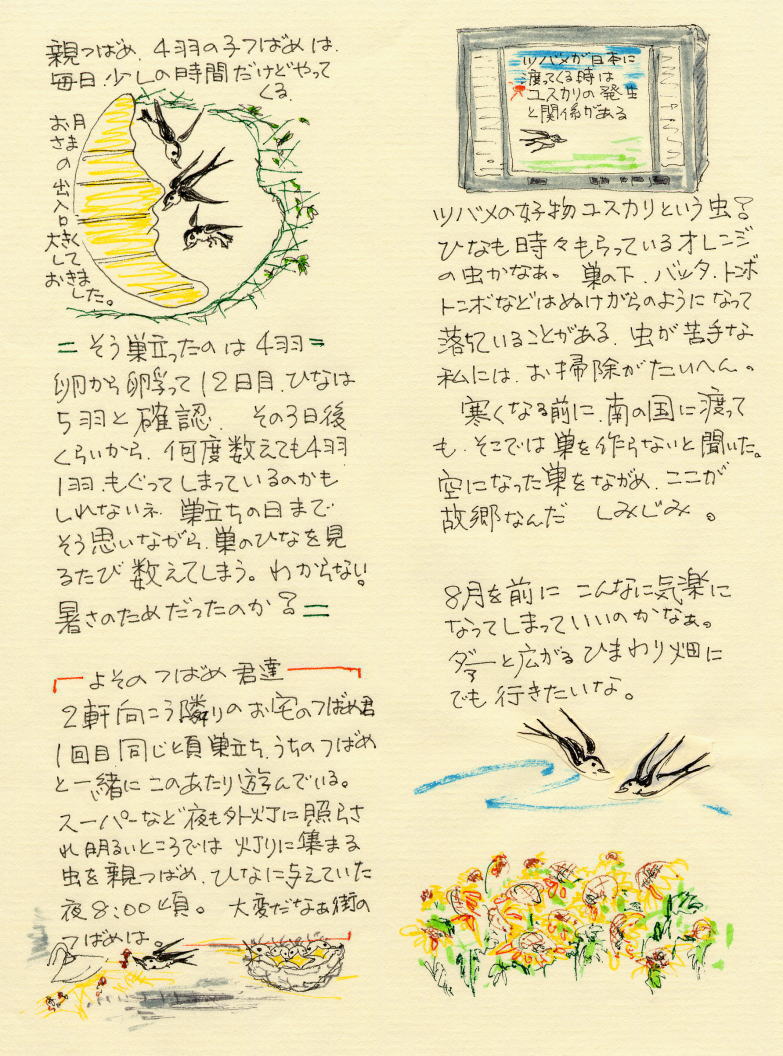 親つばめ、4羽の子つばめは、
毎日、少しの時間だけどやって
くる。
お月
さま
の
出
入
口
大きく
して
おきま
した。
= そう巣立ったのは 4羽 =
卵から卵孵って 12日目、ひなは
5羽と確認、 その3日後
くらいから、何度数えても4羽
1羽、もぐってしまっているのかも
しれないネ、 巣立ちの日まで
そう思いながら、巣のひなを見
るたび 数えてしまう。わからない。
暑さのためだったのか? =
よその つばめ 君達
2軒向こう隣りの お宅のつばめ君
1回目 同じ頃 巣立ち、うちのつばめ
と一緒に このあたり 遊んでいる。
スーパーなど 夜も外灯に 照らさ
れ 明るいところでは 灯りに集まる
虫を 親つばめ、ひなに与えていた
夜 8:00 頃。 大変だなあ 街の
つばめは。
ツバメが日本に
渡ってくる時は
ユスカリの発生
と関係がある
ツバメの好物 ユスカリという虫?
ひなも 時々もらっている オレンジ
の虫かなぁ。 巣の下、バッタ、トンボ
トンボなどはぬけがらのようになって
落ちていることがある、虫が苦手な
私には、お掃除がたいへん。
寒くなる前に、南の国に渡って
も、そこでは 巣を作らないと聞いた。
空になった巣をながめ、ここが
故郷なんだ しみじみ 。
8月を前に こんなに気楽に
なってしまっていいのかなぁ。
ダァーと広がる ひまわり畑に
でも 行きたいな。